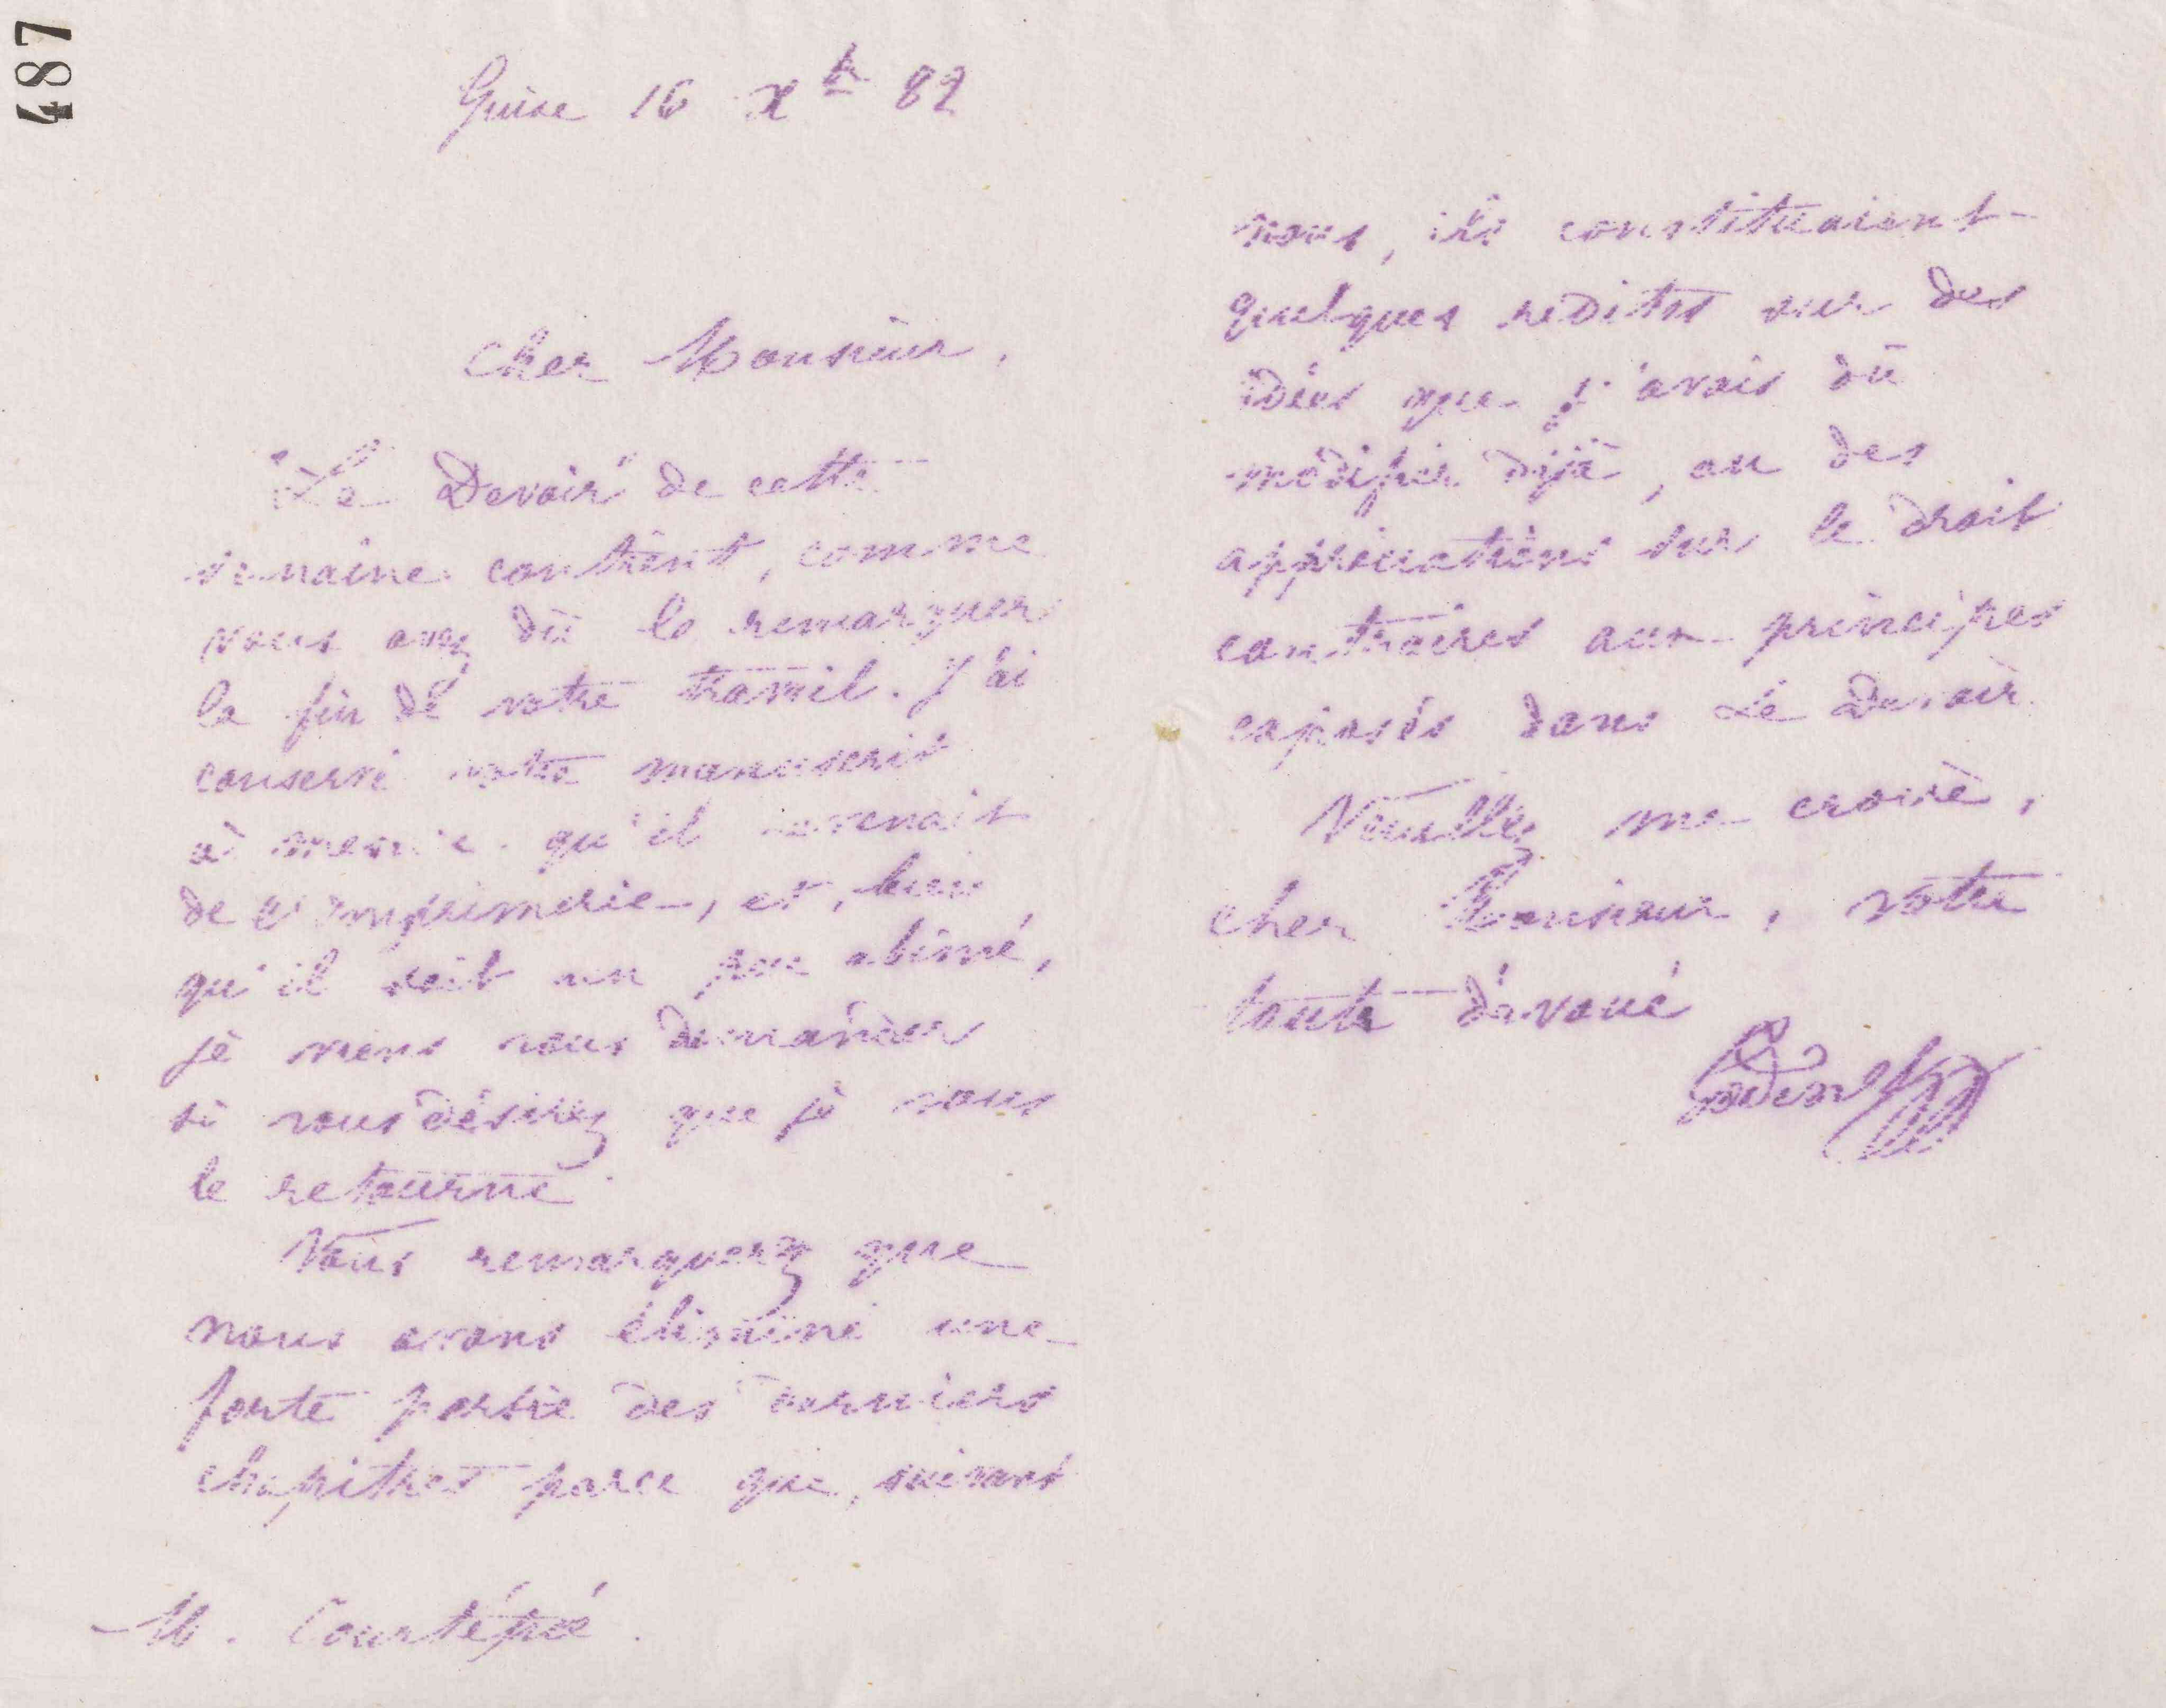 487
Guise 16 Xbre 82
Cher Monsieur,
"Le Devoir" de cette
semaine contient, comme
vous avez dû le remarquer
la fin de votre travail. J'ai
conservé votre manuscrit
à mesure qu'il revenait
de l'imprimerie, et, bien
qu'il soit un peu abîmé,
je viens vous demander
si vous désirez que je vous
le retourne.
Vous remarquerez que
nous avons éliminé une
forte partie des derniers
chapitres parce que, suivant
M. Courtépée.
nous, ils constituaient
quelques redites sur des
idées que j'avais dû
modifier déjà, ou des
appréciations sur le droit
contraires aux principes
exposés dans Le Devoir.
Veuillez me croire,
cher Monsieur, votre
tout dévoué
Godin